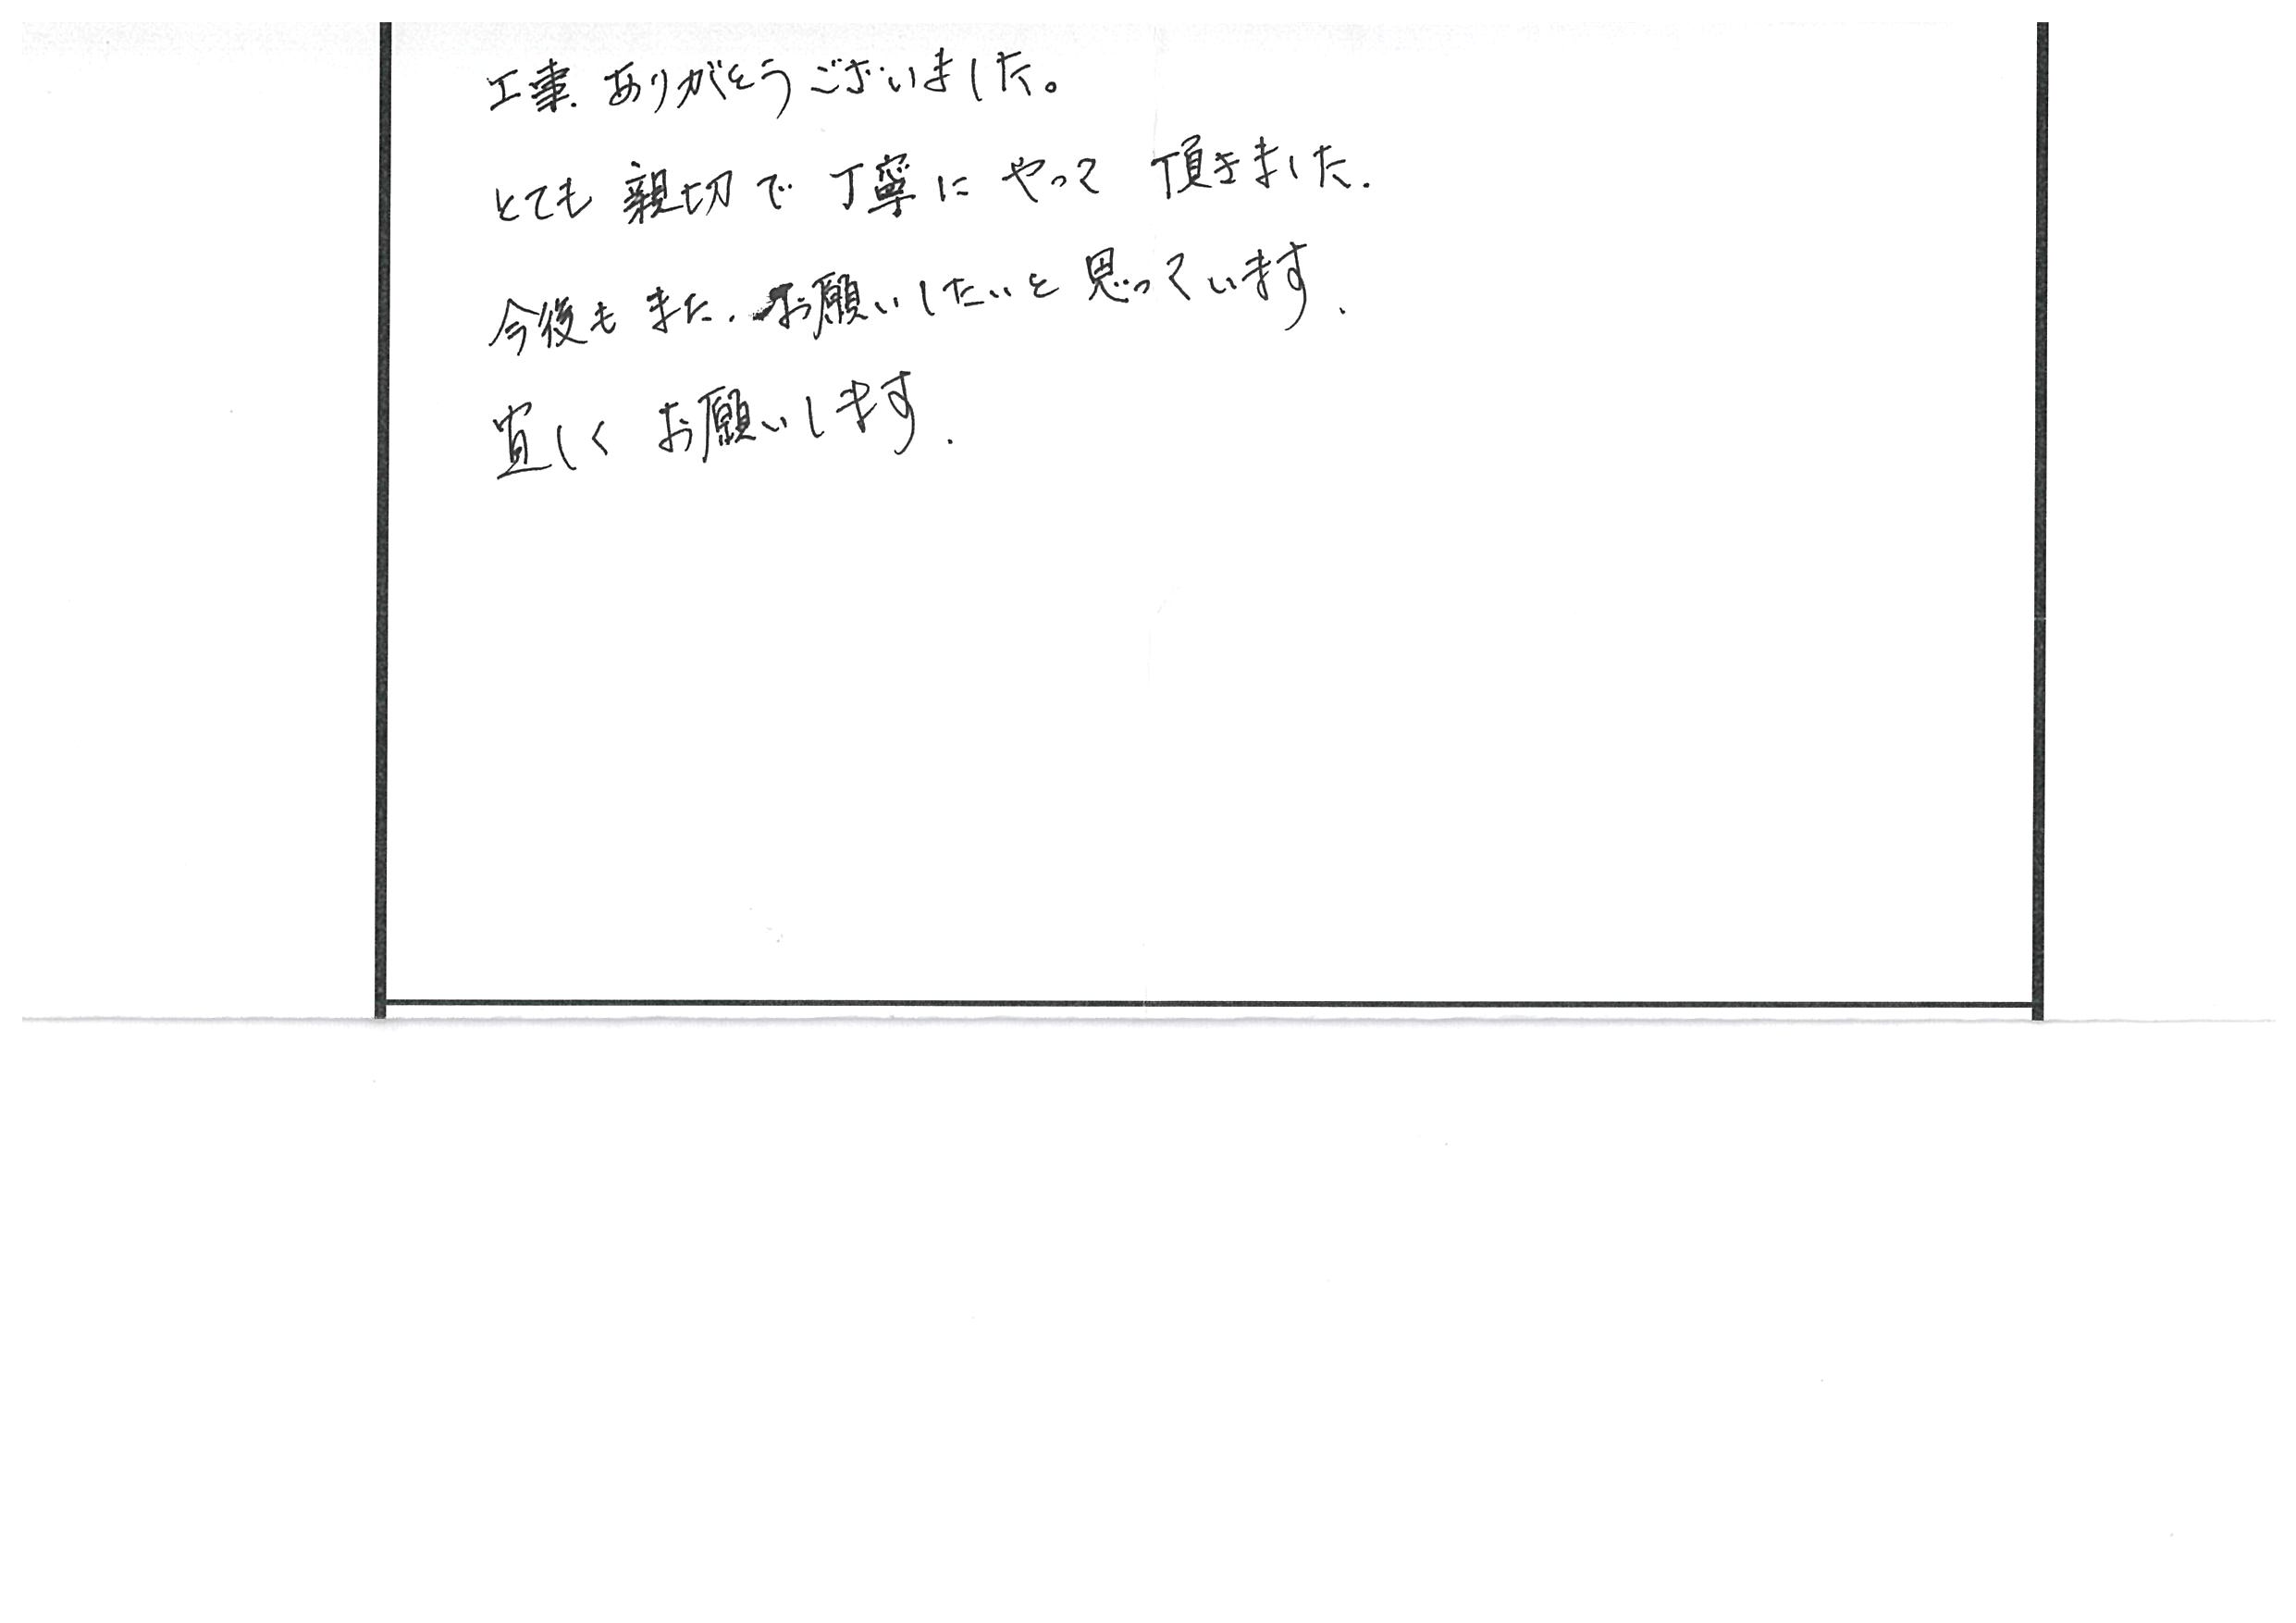 工事、ありがとうございました。
とても親切で丁寧にやって頂きました.
今後もまた、お願いしたいと思っています.
宜しくお願いします.